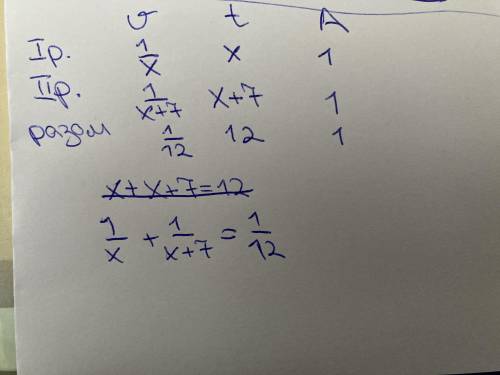 v t A
Iр. 1/x x 1
IIр. 1/x+7 x+7 1
разом 1/12 12 1
x+x+7=12
1/x + 1/x+7 = 1/12